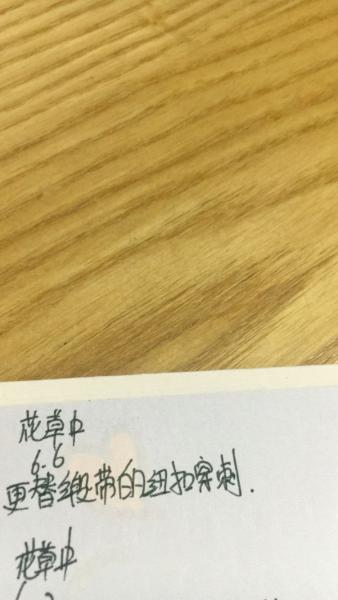 花草中
6.6
更替缎带的纽扣穿刺.
花草中